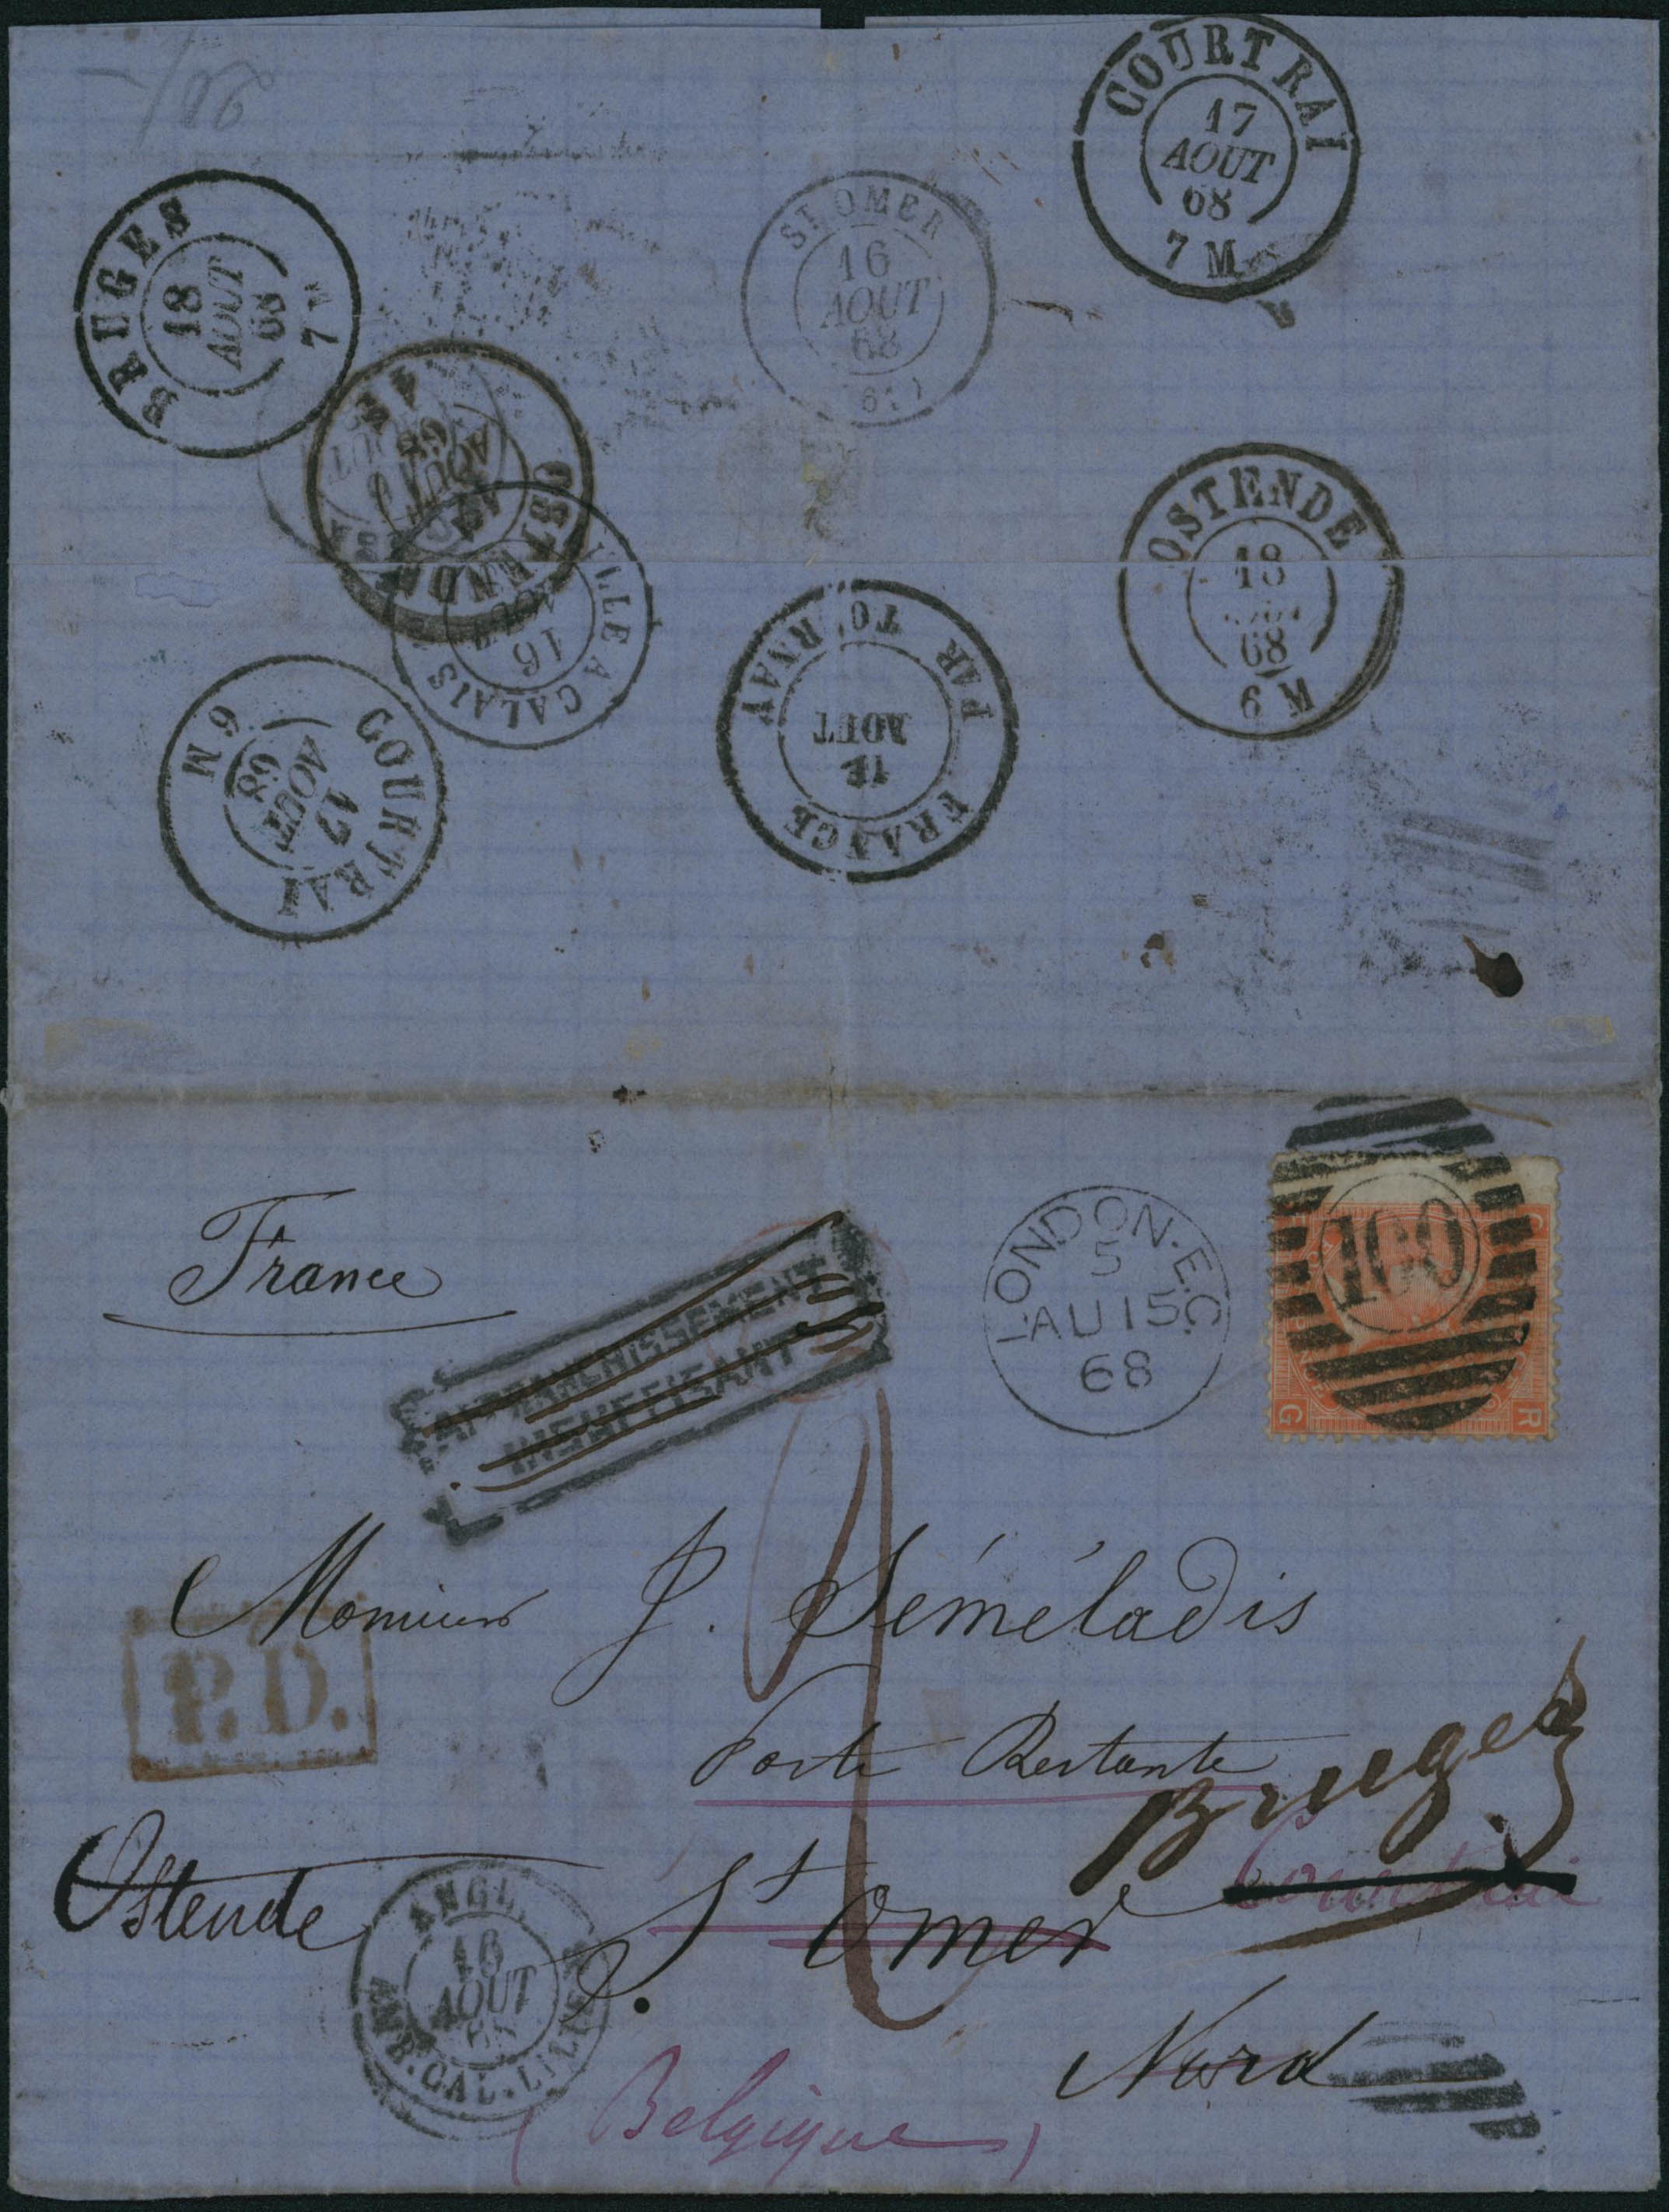 -/86
COURTRAI
17
AOUT
68
7 M
BRUGES
18
AOUT
68
7
ST OMER
16
AOUT
68
OSTENDE
AOUT
68
OSTENDE
18
68
6 M
LILLE A CALAIS
16
AOUT
FRANCE
PAR TOURNAY
AOUT
COURTRAI
17
AOUT
68
6 M
France
AFFRANCHISSEMENT
INSUFFISANT
LONDON.E.C
5
AU 15
68
100
G
R
Monsieur J. Séméladis
P.D.
Poste Restante
Bruges
Courtrai
Ostende
St Omer
ANGL.
16
AOUT
AMB.CAL.LILLE
Nord
(Belgique)